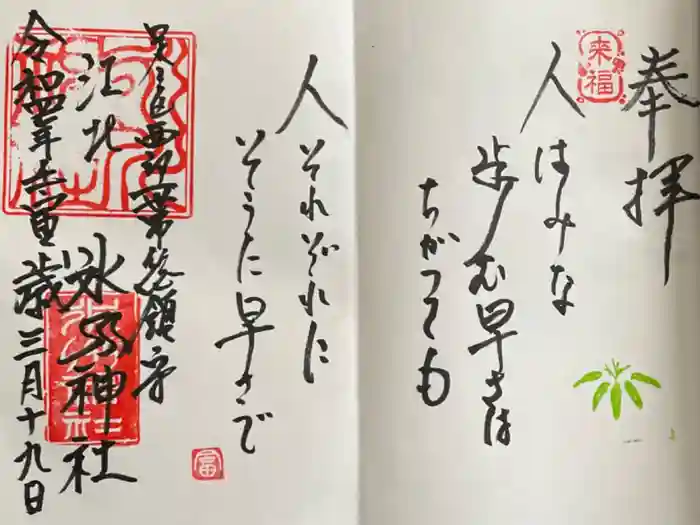 奉拝
来福
人はみな
歩む早さは
ちがっても
人それぞれに
そうた早さで
足立区西部業総領守
江北
氷川神社
令和四年壬寅歳三月十九日